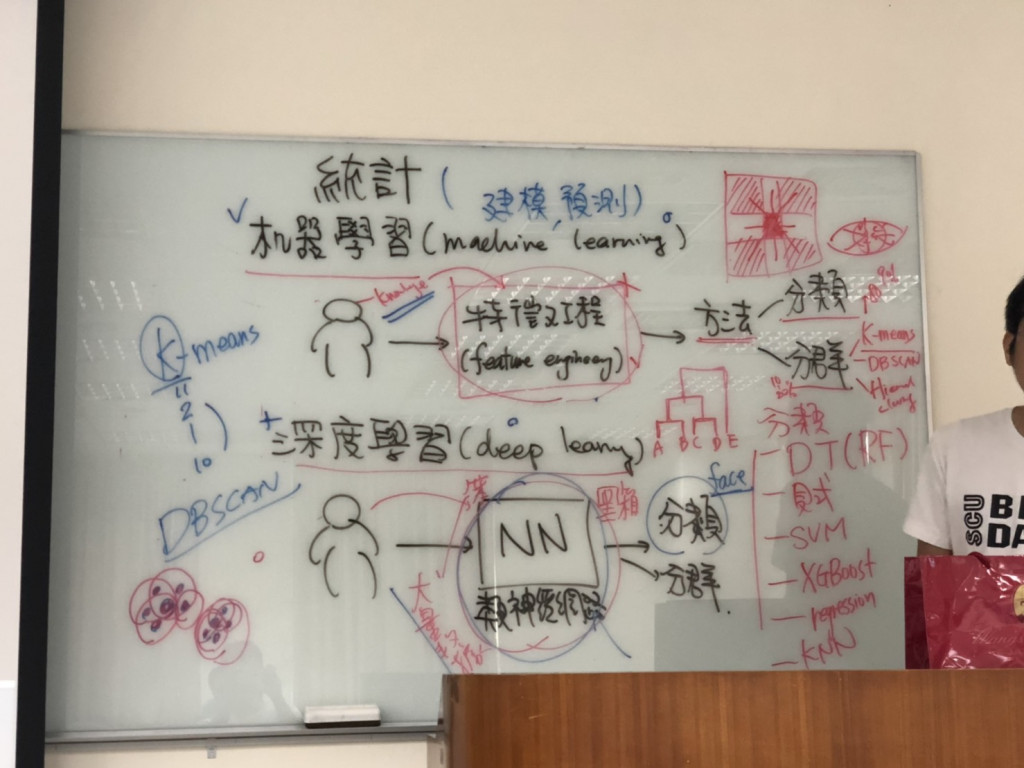 統計
(建模,預測)
机器學習(machine learning)
特徵工程
(feature engineering)
方法
分類
分群
K-means
DBSCAN
K-means
2
1
10
DBSCAN
深度學習(deep learning)
A B C D E
NN
類神經網路
黑箱
大量
face
分類
分群
分類
DT(RF)
貝式
SVM
XGBoost
regression
KNN
SCU